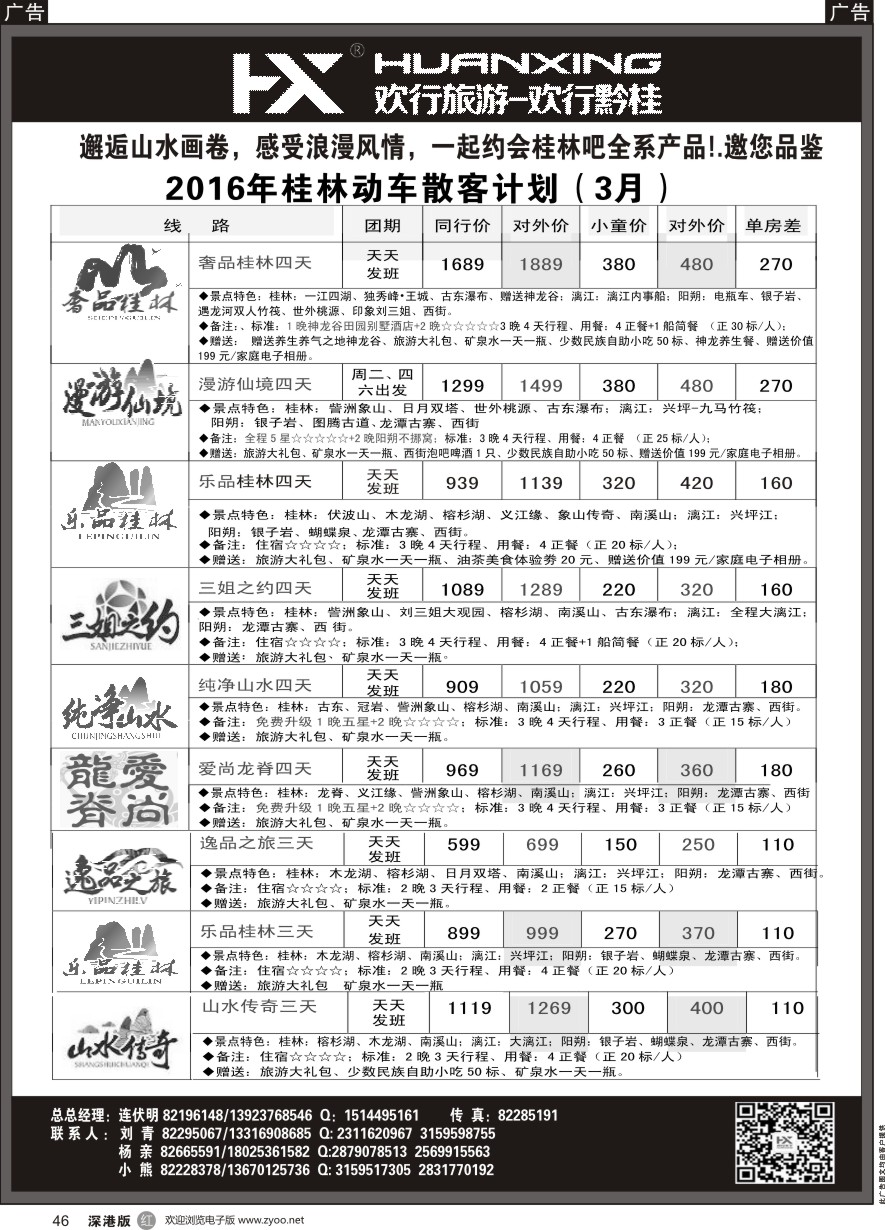 广告
广告
HX® HUANXING
欢行旅游-欢行黔桂
邂逅山水画卷，感受浪漫风情，一起约会桂林吧全系产品!.邀您品鉴
2016年桂林动车散客计划（3月）
线 路 团期 同行价 对外价 小童价 对外价 单房差
奢品桂林
SHEPINGUILIN
奢品桂林四天 天天发班 1689 1889 380 480 270
◆景点特色：桂林：一江四湖、独秀峰•王城、古东瀑布、赠送神龙谷；漓江：漓江内事船；阳朔：电瓶车、银子岩、
遇龙河双人竹筏、世外桃源、印象刘三姐、西街。
◆备注：、标准：1晚神龙谷田园别墅酒店+2晚☆☆☆☆☆3晚4天行程、用餐：4正餐+1船简餐 （正30标/人）；
◆赠送： 赠送养生养气之地神龙谷、旅游大礼包、矿泉水一天一瓶、少数民族自助小吃50标、神龙养生餐、赠送价值
199元/家庭电子相册。
漫游仙境
MANYOUXIANJING
漫游仙境四天 周二、四六出发 1299 1499 380 480 270
◆景点特色：桂林：訾洲象山、日月双塔、世外桃源、古东瀑布；漓江：兴坪-九马竹筏；
阳朔：银子岩、图腾古道、龙潭古寨、西街
◆备注：全程5星☆☆☆☆☆+2晚阳朔不挪窝；标准：3晚4天行程、用餐：4正餐 （正25标/人）；
◆赠送：旅游大礼包、矿泉水一天一瓶、西街泡吧啤酒1只、少数民族自助小吃50标、赠送价值199元/家庭电子相册。
乐品桂林
LEPINGUILIN
乐品桂林四天 天天发班 939 1139 320 420 160
◆景点特色：桂林：伏波山、木龙湖、榕杉湖、义江缘、象山传奇、南溪山；漓江：兴坪江；
阳朔：银子岩、蝴蝶泉、龙潭古寨、西街。
◆备注：住宿☆☆☆☆；标准：3晚4天行程、用餐：4正餐（正20标/人）；
◆赠送：旅游大礼包、矿泉水一天一瓶、油茶美食体验劵20元、赠送价值199元/家庭电子相册。
三姐之约
SANJIEZHIYUE
三姐之约四天 天天发班 1089 1289 220 320 160
◆景点特色：桂林：訾洲象山、刘三姐大观园、榕杉湖、南溪山、古东瀑布；漓江：全程大漓江；
阳朔：龙潭古寨、西 街。
◆备注：住宿☆☆☆☆；标准：3晚4天行程、用餐：4正餐+1船简餐（正20标/人）；
◆赠送：旅游大礼包、矿泉水一天一瓶。
纯净山水
CHUNJINGSHANGSHUI
纯净山水四天 天天发班 909 1059 220 320 180
◆景点特色：桂林：古东、冠岩、訾洲象山、榕杉湖、南溪山；漓江：兴坪江；阳朔：龙潭古寨、西街。
◆备注：免费升级1晚五星+2晚☆☆☆☆；标准：3晚4天行程、用餐：3正餐（正15标/人）
◆赠送：旅游大礼包、矿泉水一天一瓶。
龍愛
脊尚
爱尚龙脊四天 天天发班 969 1169 260 360 180
◆景点特色：桂林：龙脊、义江缘、訾洲象山、榕杉湖、南溪山；漓江：兴坪江；阳朔：龙潭古寨、西街
◆备注：免费升级1晚五星+2晚☆☆☆☆；标准：3晚4天行程、用餐：3正餐（正15标/人）
◆赠送：旅游大礼包、矿泉水一天一瓶。
逸品之旅
YIPINZHILV
逸品之旅三天 天天发班 599 699 150 250 110
◆景点特色：桂林：木龙湖、榕杉湖、日月双塔、南溪山；漓江：兴坪江；阳朔：龙潭古寨、西街。
◆备注：住宿☆☆☆☆；标准：2晚3天行程、用餐：2正餐（正15标/人）
◆赠送：旅游大礼包、矿泉水一天一瓶。
乐品桂林
LEPINGUILIN
乐品桂林三天 天天发班 899 999 270 370 110
◆景点特色：桂林：木龙湖、榕杉湖、南溪山；漓江：兴坪江；阳朔：银子岩、蝴蝶泉、龙潭古寨、西街。
◆备注：住宿☆☆☆☆；标准：2晚3天行程、用餐：4正餐（正20标/人）
◆赠送：旅游大礼包 矿泉水一天一瓶
山水传奇
SHANGSHUICHUANQI
山水传奇三天 天天发班 1119 1269 300 400 110
◆景点特色：桂林：榕杉湖、木龙湖、南溪山；漓江：大漓江；阳朔：银子岩、蝴蝶泉、龙潭古寨、西街。
◆备注：住宿☆☆☆☆；标准：2晚3天行程、用餐：4正餐（正20标/人）
◆赠送：旅游大礼包、少数民族自助小吃50标、矿泉水一天一瓶。
总总经理：连伏明 82196148/13923768546 Q：1514495161 传 真：82285191
联系人：刘 青 82295067/13316908685 Q:2311620967 3159598755
杨 亲 82665591/18025361582 Q:2879078513 2569915563
小 熊 82228378/13670125736 Q:3159517305 2831770192
此广告图文均由客户提供
46 深港版 红 欢迎浏览电子版 www.zyoo.net